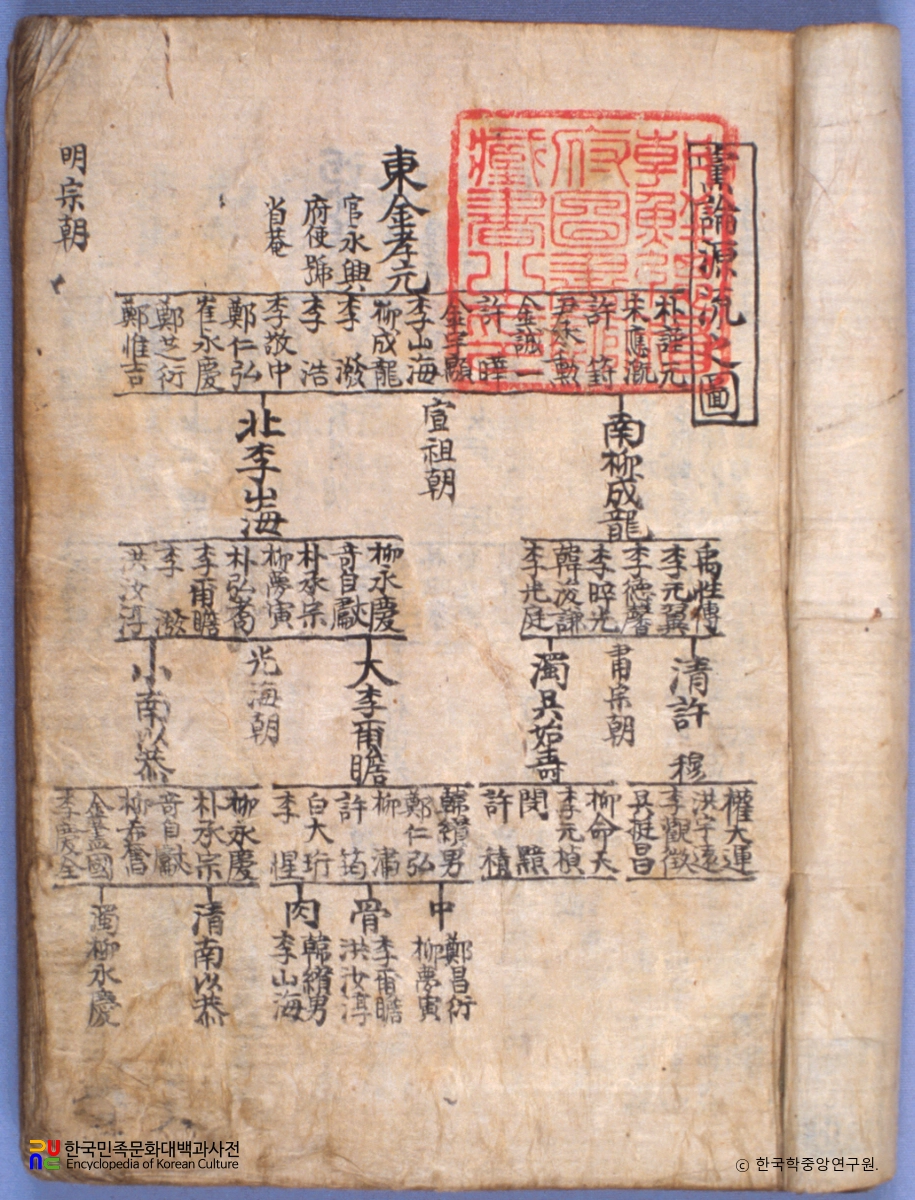 黨論源流之圖
朝鮮總督
府圖書館
藏書之印
東金孝元
官永興
府使號
省菴
明宗朝
朴謹元
宋應漑
許篈
尹承勳
金誠一
許曄
金宇顒
李山海
柳成龍
李潑
李浩
李敬中
鄭仁弘
崔永慶
鄭芝衍
鄭惟吉
南柳成龍
宣祖朝
北李山海
禹性傳
李元翼
李德馨
李睟光
韓浚謙
李光庭
柳永慶
奇自獻
朴承宗
柳夢寅
朴弘耉
李爾瞻
李潑
洪汝淳
清許穆
肅宗朝
濁吳始壽
大李爾瞻
光海朝
小南以恭
權大運
洪宇遠
李觀徵
吳挺昌
柳命天
李元楨
閔黯
許積
韓纘男
鄭仁弘
柳潚
許筠
白大珩
李惺
柳永慶
朴承宗
奇自獻
柳希奮
金藎國
李慶全
中
鄭昌衍
柳夢寅
骨
李爾瞻
洪汝淳
肉
韓纘男
李山海
清南以恭
濁柳永慶
한국민족문화대백과사전
Encyclopedia of Korean Culture
ⓒ 한국학중앙연구원.